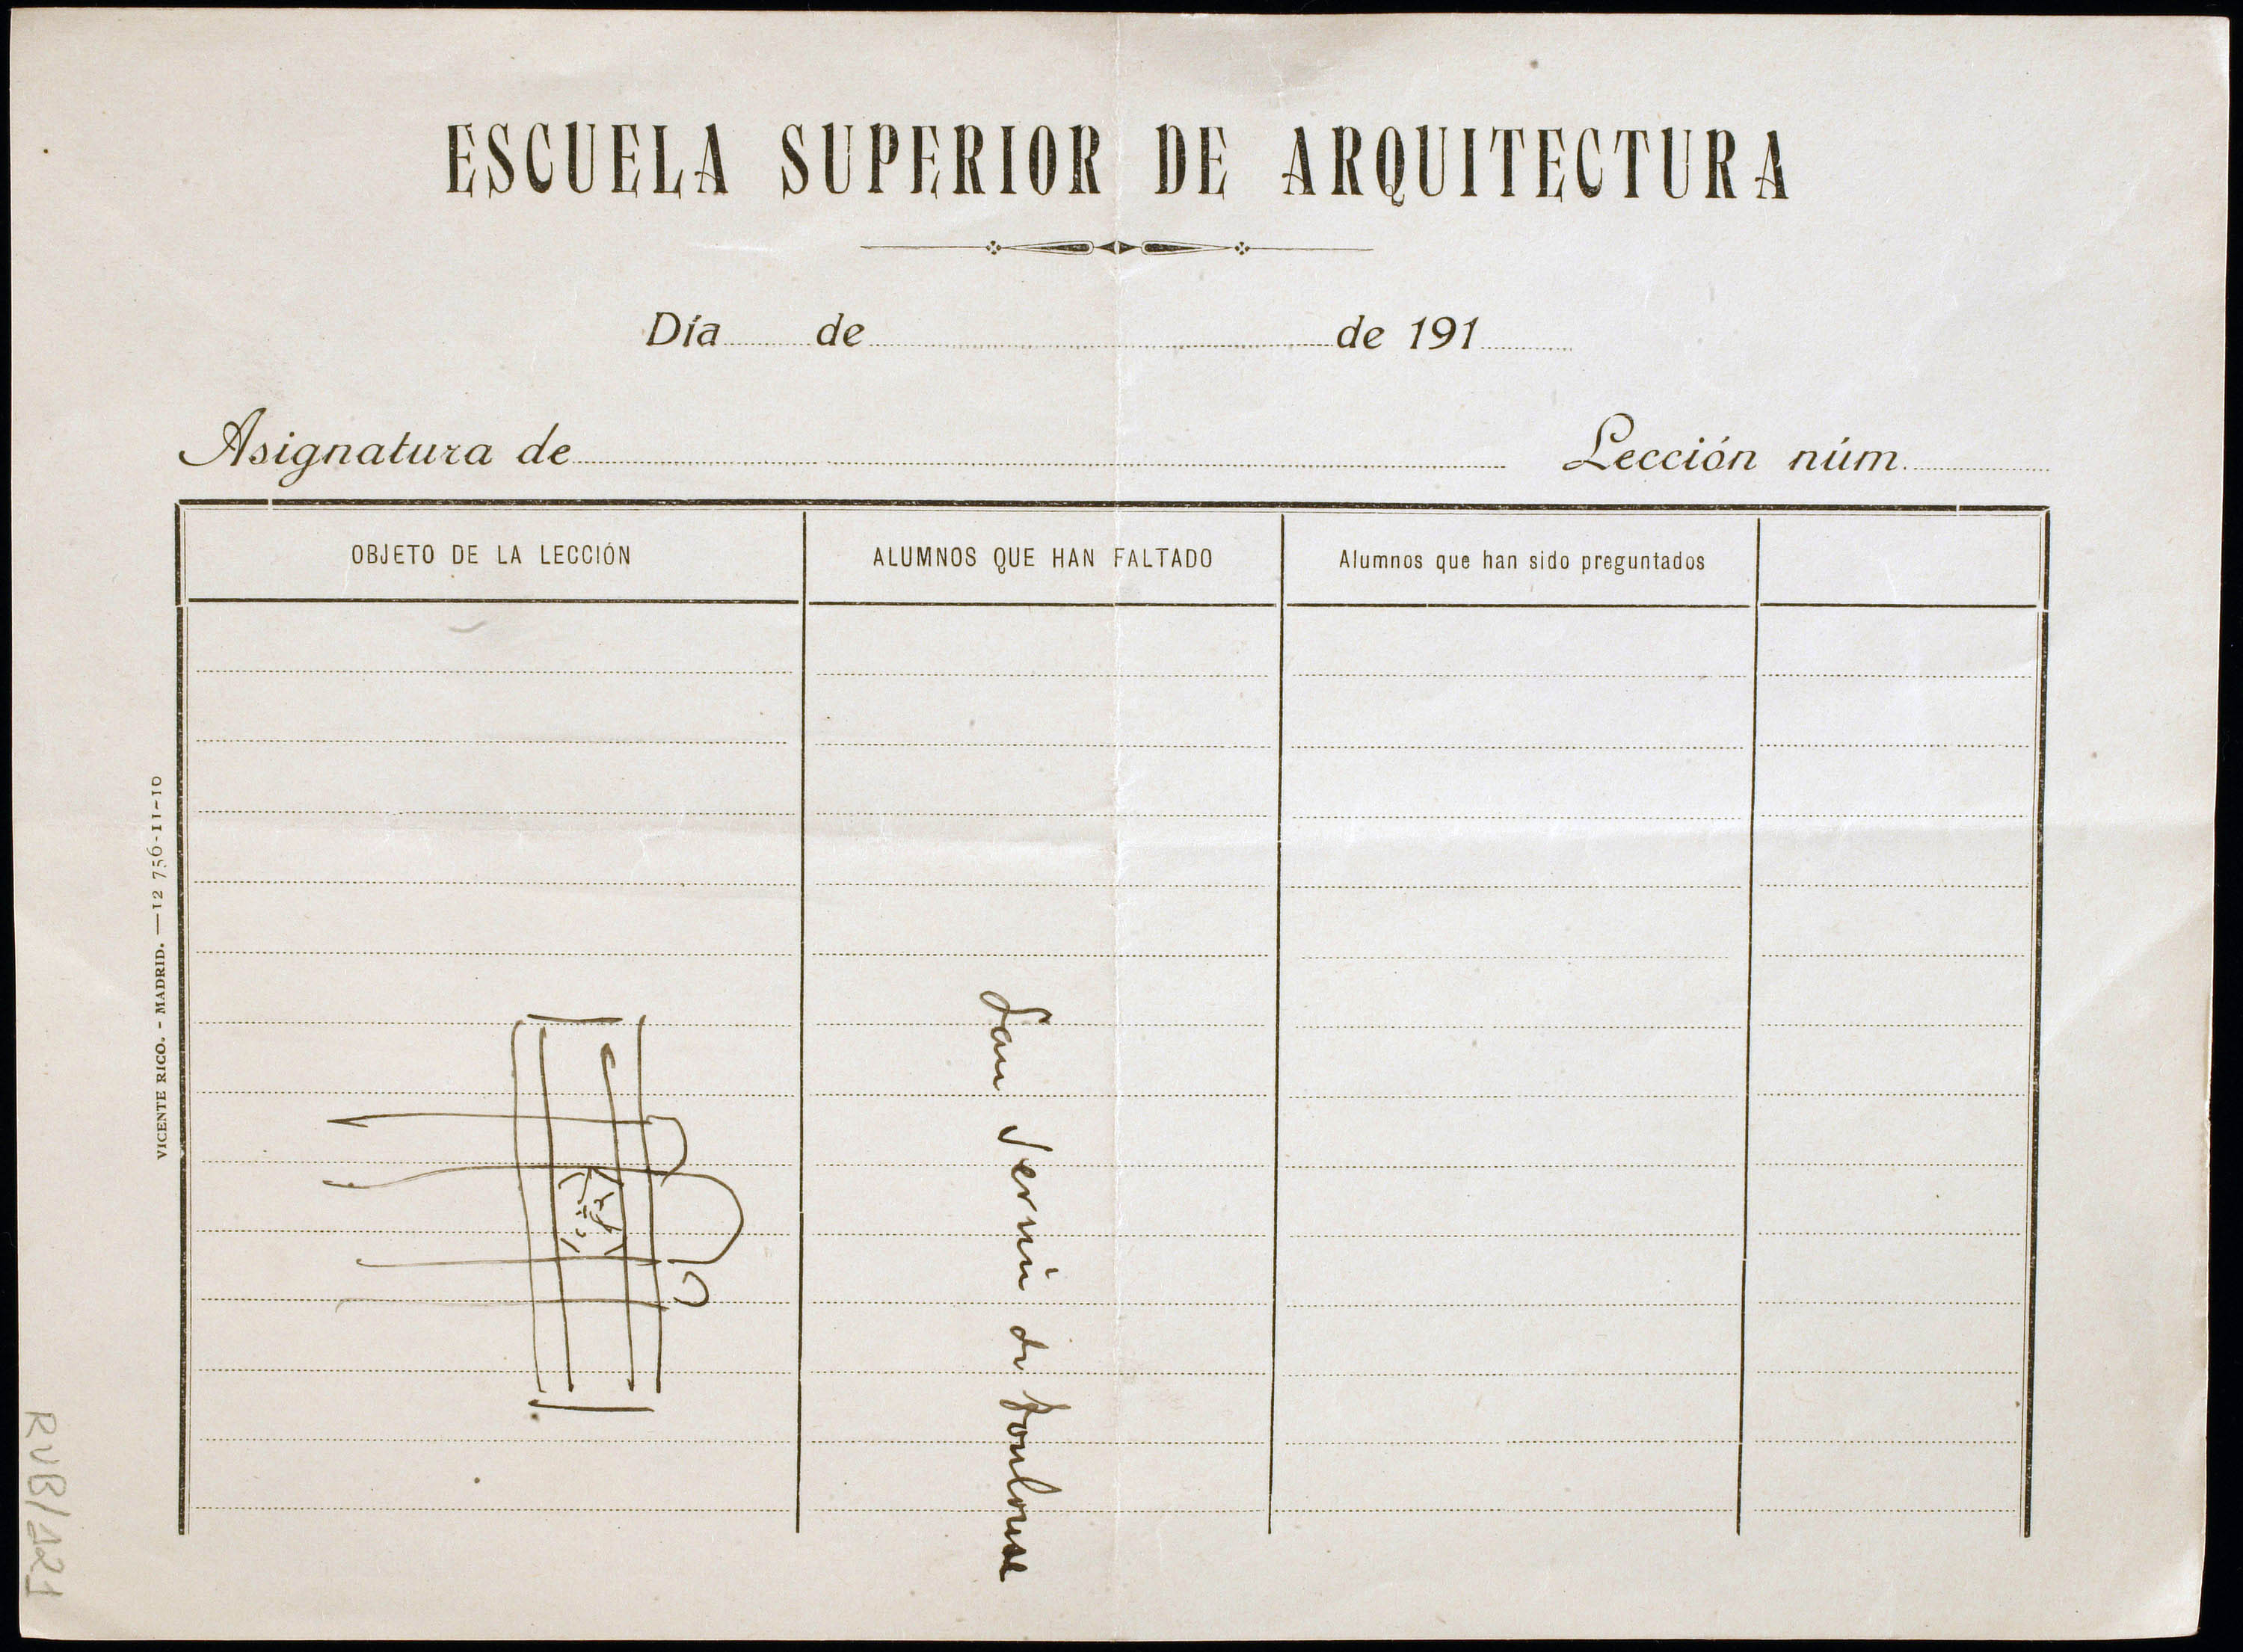 ESCUELA SUPERIOR DE ARQUITECTURA
Día de de 191
Asignatura de Lección núm.
OBJETO DE LA LECCIÓN ALUMNOS QUE HAN FALTADO Alumnos que han sido preguntados
San Sernin de Toulouse
VICENTE RICO. - MADRID. — 12 756-11-10
RVB/121